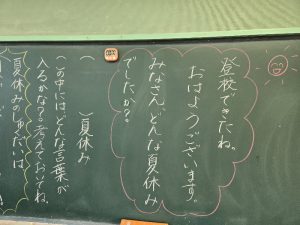 登校できたね。
おはようございます。
みなさん、どんな夏休み
でしたか？
（　　　）夏休み
（）の中には、どんな言葉が
入るかな？考えておいてね。
夏休みのしゅくだいは